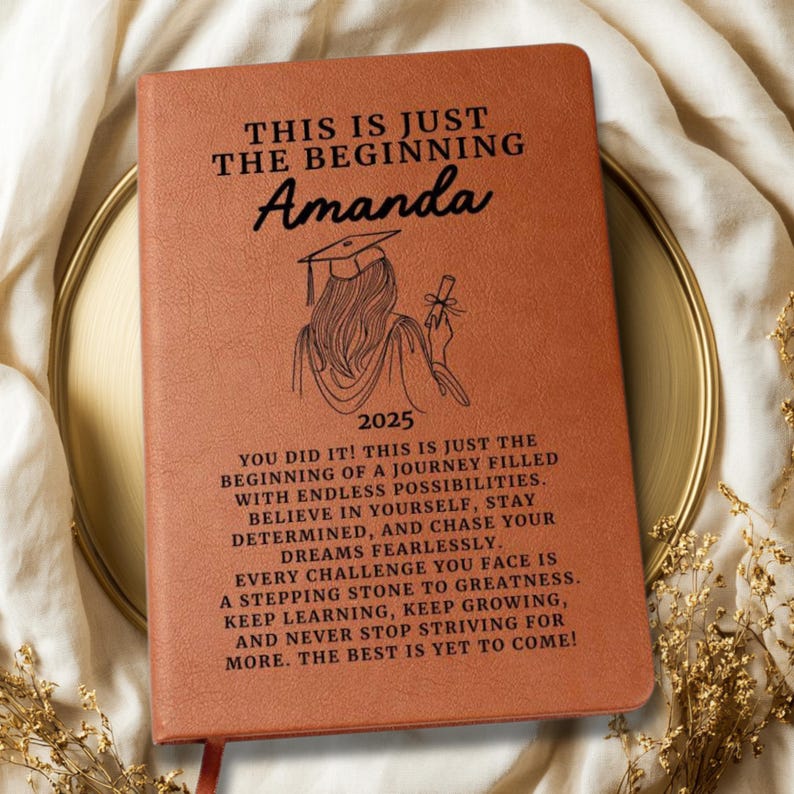 THIS IS JUST
THE BEGINNING
Amanda
2025
YOU DID IT! THIS IS JUST THE
BEGINNING OF A JOURNEY FILLED
WITH ENDLESS POSSIBILITIES.
BELIEVE IN YOURSELF, STAY
DETERMINED, AND CHASE YOUR
DREAMS FEARLESSLY.
EVERY CHALLENGE YOU FACE IS
A STEPPING STONE TO GREATNESS.
KEEP LEARNING, KEEP GROWING,
AND NEVER STOP STRIVING FOR
MORE. THE BEST IS YET TO COME!